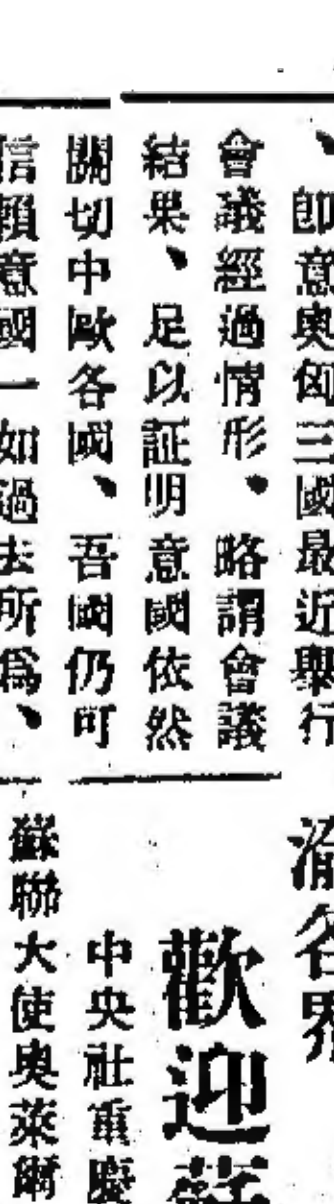 、卽意奧匈三國最近舉行
會議經過情形、略謂會議
結果、足以証明意國依然
關切中歐各國、吾國仍可
信賴意國一如過去所爲、
渝各界
歡迎
中央社重慶
蘇聯大使奧萊